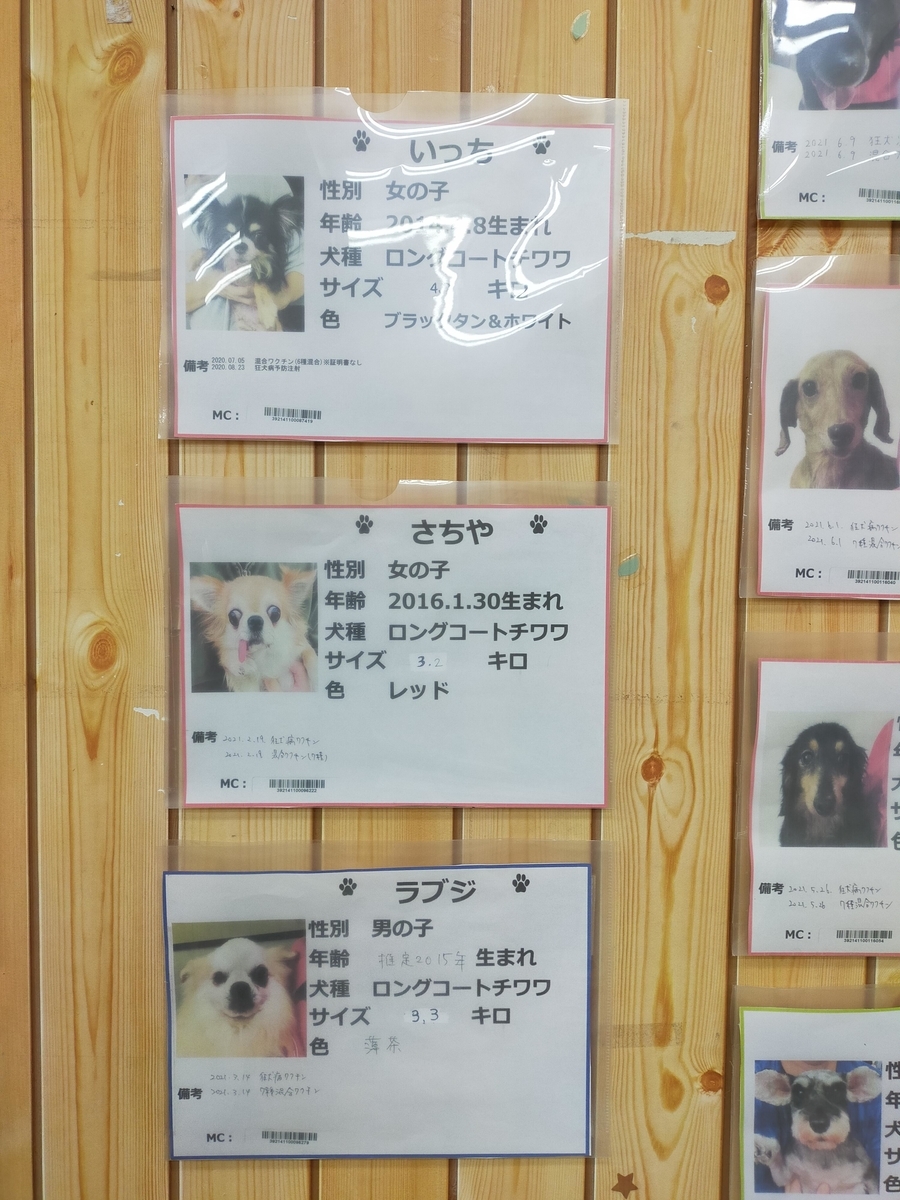 いっち
性別 女の子
年齢 8生まれ
犬種 ロングコートチワワ
サイズ キロ
色 ブラックタン&ホワイト
備考 2020.07.05 混合ワクチン(6種混合)※証明書なし
2020.08.23 狂犬病予防注射
MC:
さちや
性別 女の子
年齢 2016.1.30生まれ
犬種 ロングコートチワワ
サイズ 3.2 キロ
色 レッド
備考 2021.2.19 狂犬病ワクチン
2021.2.19 混合ワクチン(7種)
MC:
ラブジ
性別 男の子
年齢 推定2015年 生まれ
犬種 ロングコートチワワ
サイズ 3.3 キロ
色 薄茶
狂犬病ワクチン
備考 7種混合ワクチン
MC:
備考 2021 6 9 狂犬
2021 6 9 混合
MC:
備考 2021.6.1 狂犬病ワクチン
2021.6.1 7種混合ワクチン
MC:
備考 2021.5.26 狂犬病ワクチン
2021.5.26 7種混合ワクチン
MC:
性
年
犬
サ
色